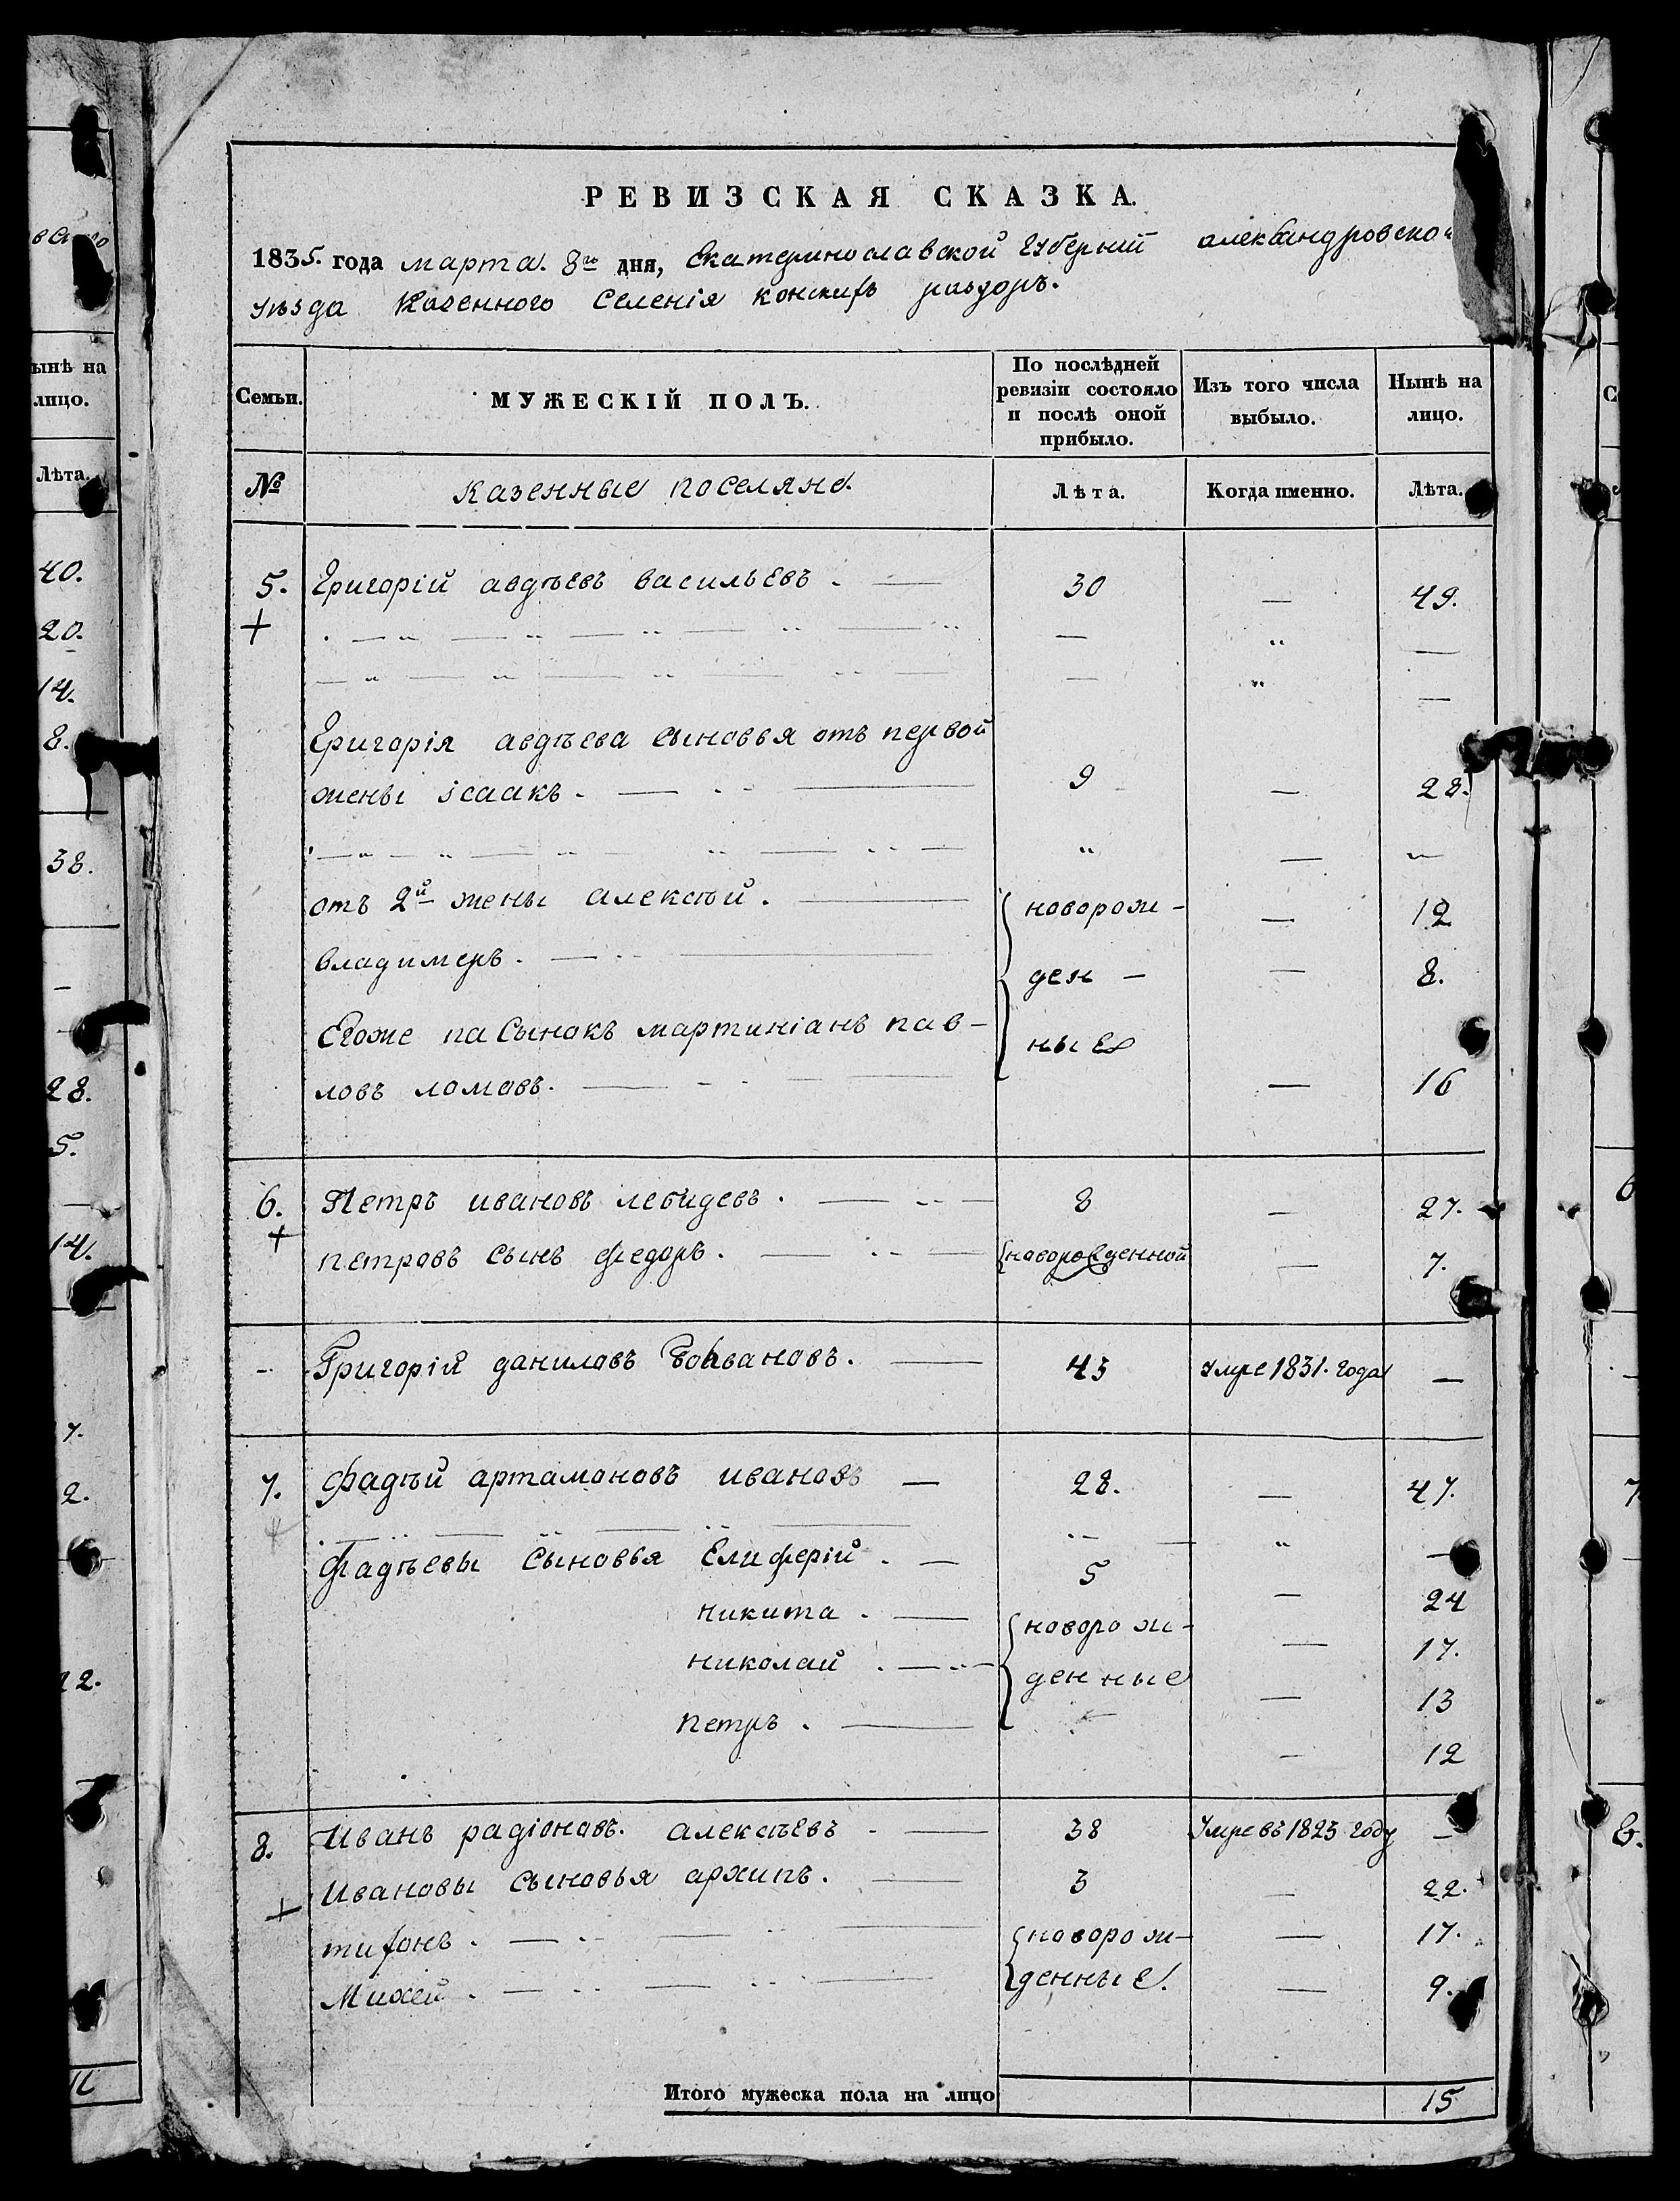 РЕВИЗСКАЯ СКАЗКА.
1835. года марта. 8го дня, Екатеринославской Губерній александровской
уѣзда Казенного Селенія конскихъ раздоръ.
Семьи. МУЖЕСКІЙ ПОЛЪ. По послѣдней ревизіи состояло и послѣ оной прибыло. Изъ того числа выбыло. Нынѣ на лицо.
№ казенные поселяне. Лѣта. Когда именно. Лѣта.
5. Григорій авдѣевъ васильевъ. 30 — 49.
Григорія авдѣева сыновья отъ первой
жены ісаакъ. 9 — 28.
отъ 2й жены алексѣй. новорож- — 12
владимеръ. ден- — 8.
Егоже пасынокъ мартиніанъ пав- ные
ловъ ломовъ. — 16
6. Петръ ивановъ лебидевъ. 8 — 27.
петровъ сынъ федоръ. новорожденной — 7.
- Григорій даниловъ 43 умре 1831. года —
7. Фадѣй артамоновъ ивановъ — 28. — 47.
Фадѣевы сыновья Елиферій. — 5 — 24
никита. новорож- — 17.
николай. денные — 13
петръ. — 12
8. Иванъ радіоновъ. алексѣевъ - 38 Умре въ 1823 году —
Ивановы сыновья архипъ. 3 — 22.
тифонъ. новорож- — 17.
Михей. денные. — 9.
Итого мужеска пола на лицо 15
ынѣ на
лицо.
Лѣта.
40.
20.
14.
8.
38.
28.
5.
14.
7.
2.
22.